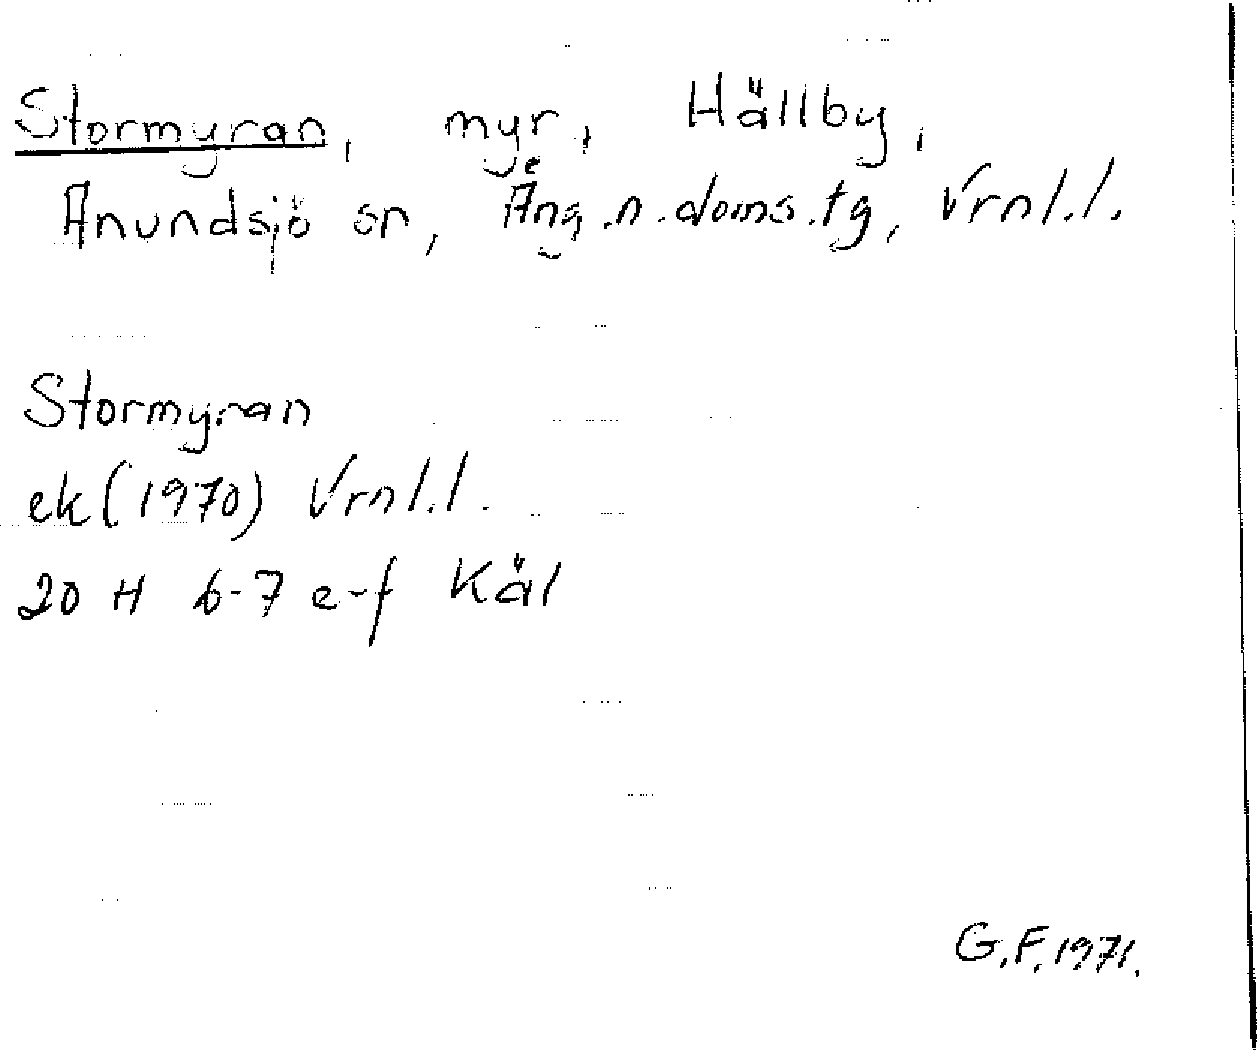 Stormyran, myr, Hällby,
Anundsjö sn, Äng.n.doms.tg, Vrnl.l.
Stormyran
ek (1970) Vrnl.l.
20 H 6-7 e-f Käl
G.F. 1971.